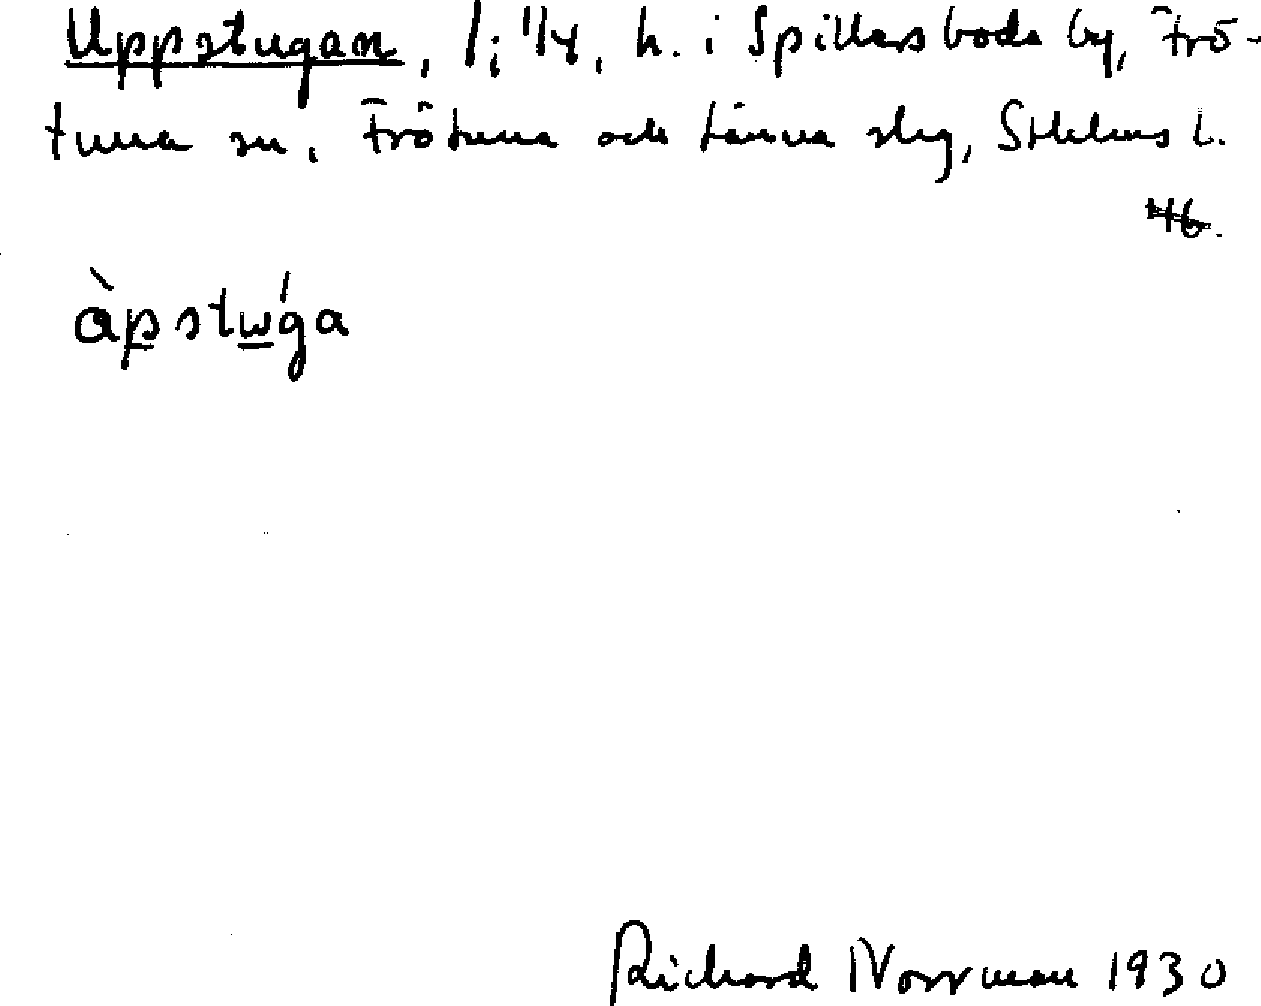 Uppstugan, 1; 1/4, h. i Spillersboda by, Frö-
tuna sn. Frötuna och Länna slg, Sthlms l.
àpstwǵa
Richard Norrman 1930